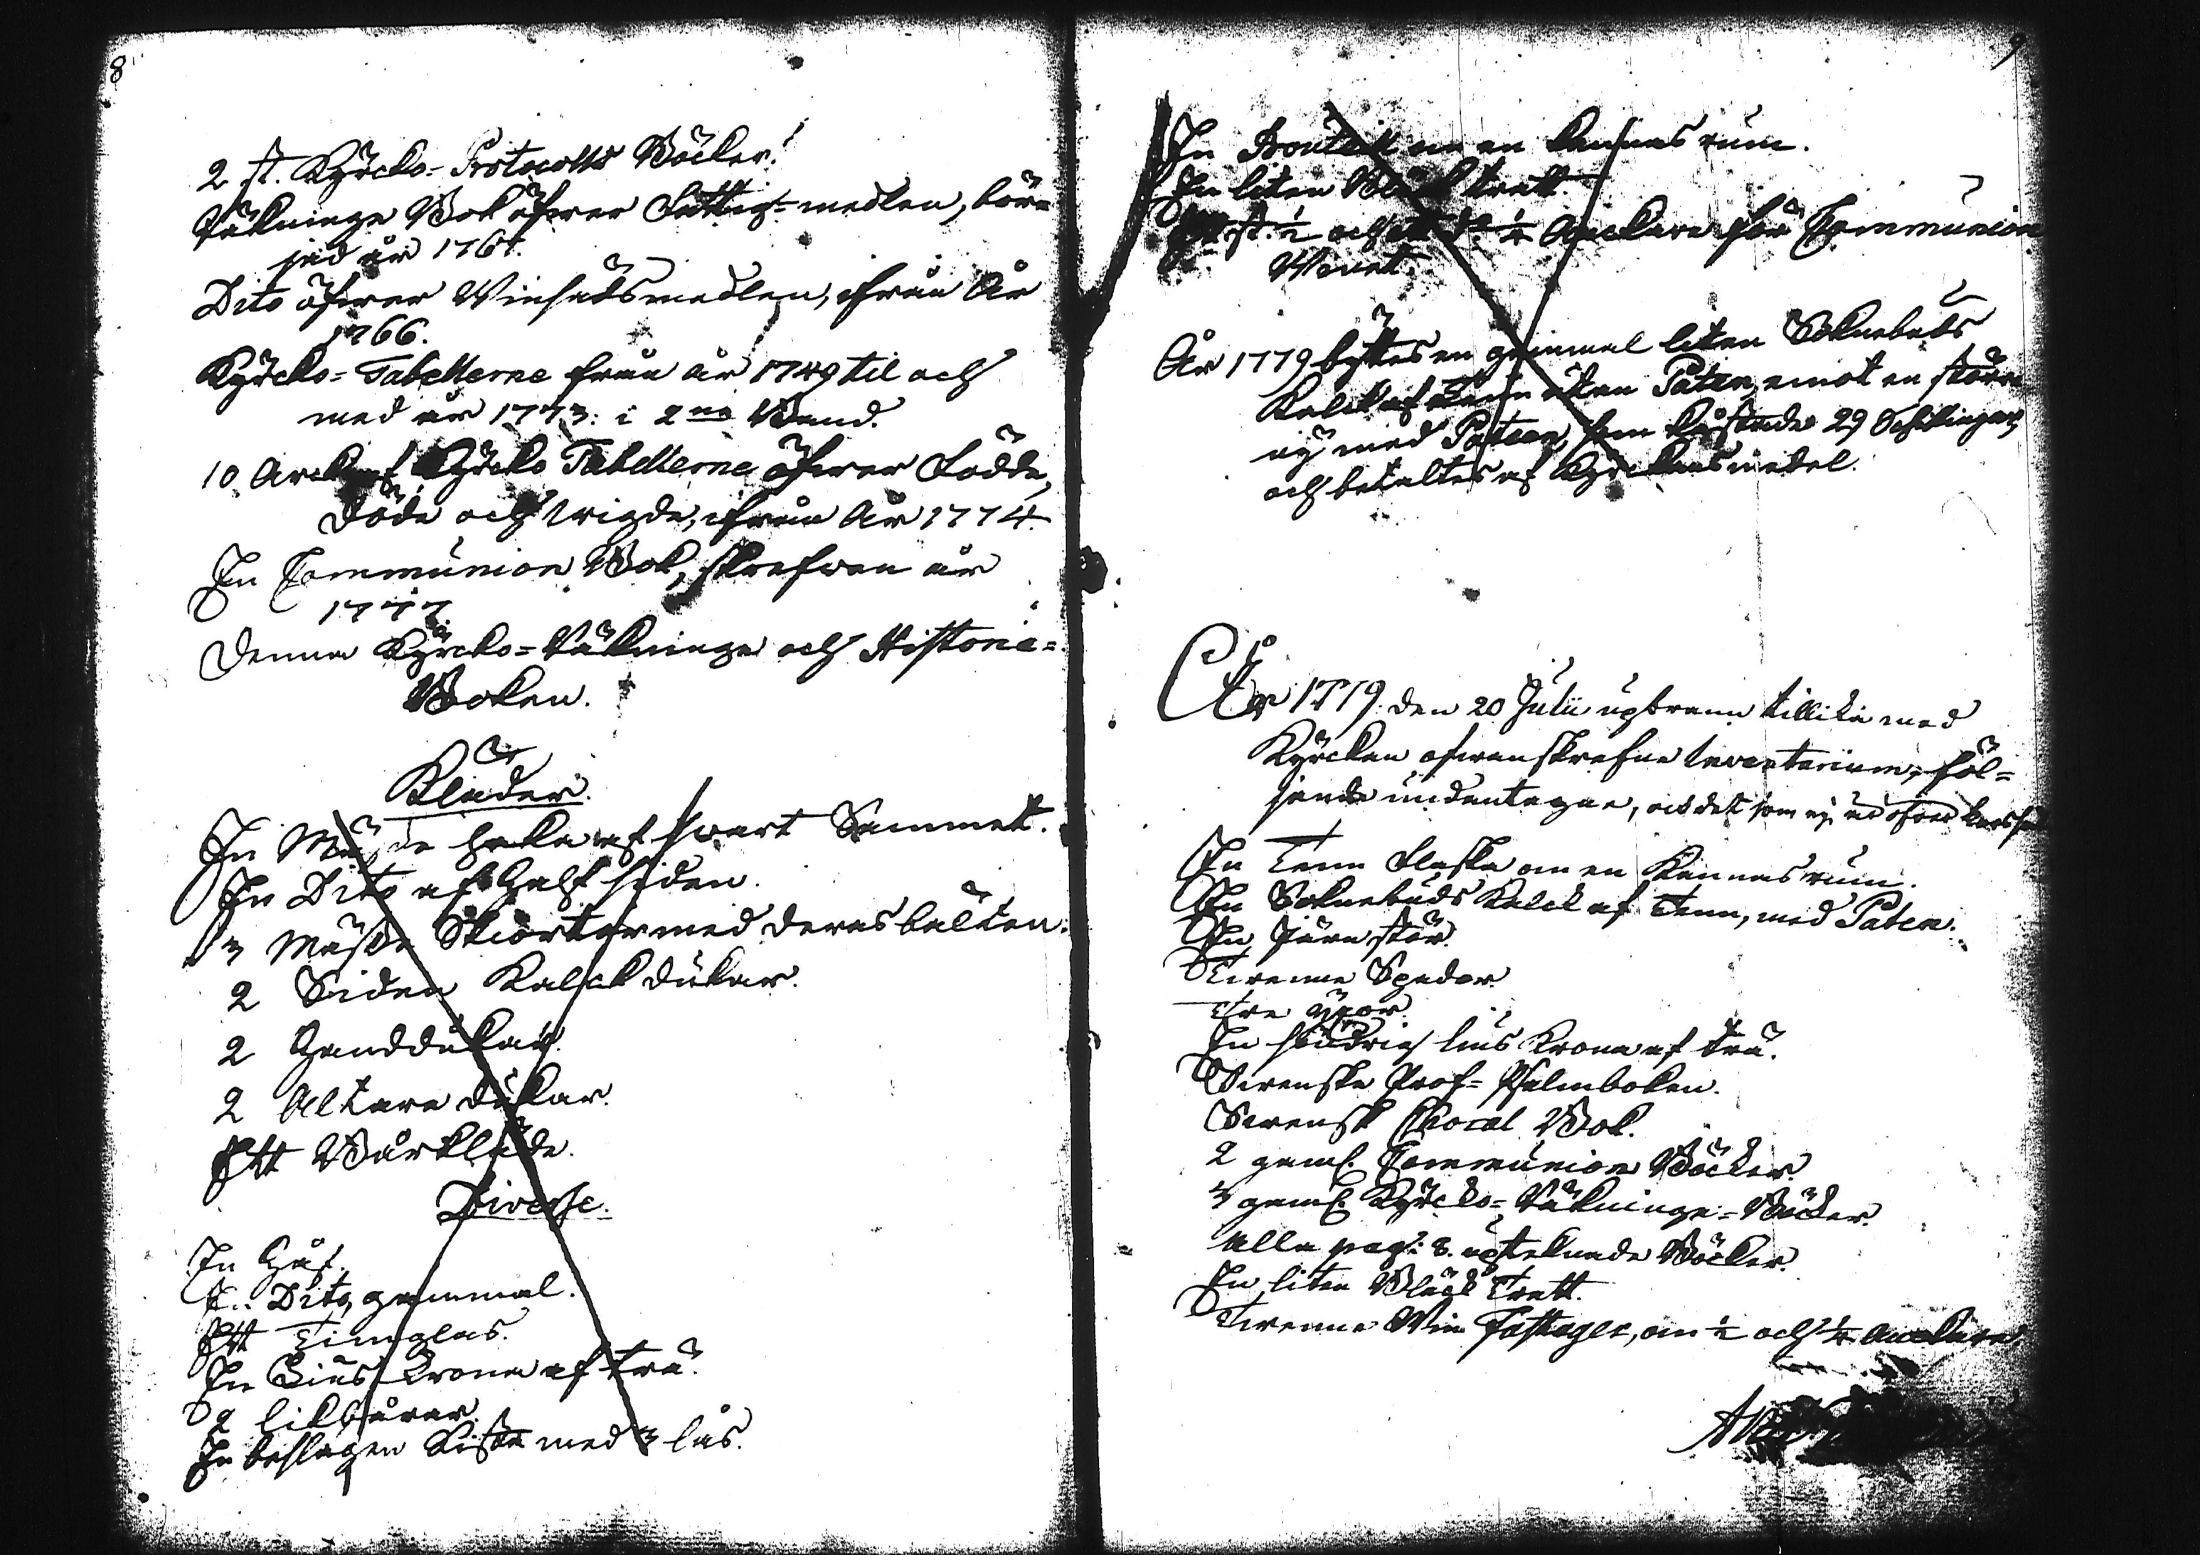 8
2 st. Kyrcko-Protocolls Böcker.
Räkninge Bok öfwer Fattig-medlen, bör-
jad år 1761.
Dito öfwer Winsädsmedlen, ifrån År
1766.
Kyrcko-Tabellerne från år 1749 til och
med år 1773. i 2ne Band.
10 Arck af Kyrcko Tabellerne öfwer Födde,
Döde och wigde, ifrån År 1774.
En Communion Bok, skrefwen år
1777.
Denna Kyrcko-Räkninge och Historie-
Boken.
Kläder.
En Mässe hake af swart Sammet.
En Dito af Half siden.
3 Mässe Skiörtor med deras bälten.
2 Siden Kalck dukar.
2 Handdukar.
2 Altare dukar.
Ett Bårkläde.
Diverse.
En Håf.
E.. Dito, gammal.
Ett Timglas.
En Lius Krona af trä.
2 likbårar.
En beslagen Kista med 3 lås.
9
En Bouteille om en Kannas rum.
En liten Bläck tratt.
Ett st. ½ och ett d:o ¼ Anckare för Communion
Winet.
År 1779 byttes en gammal liten Soknebuds
Kalck af Tenn utan Paten, emot en större
ny med Paten, som kostade 29 Schillingar
och betaltes af Kyrckans medel.
År 1779. den 20 Julii upbrann tillika med
Kyrckan ofwanskrefne Inventarium, föl-
jande undantagne, och det som ej är öfwerkorssat
En Tenn Flaska om en Kannas rum.
En Soknebuds Kalck af Tenn, med Paten.
En Järn stör.
Twenne Spador.
Tre gypor.
En söndrig lius Krona af trä.
Swenske Prof-Psalmboken.
Swensk Choral Bok.
2 gaml. Communion Böcker.
3 gaml. Kyrcko-Räkninge-Böcker.
Alla pag: 8. uptecknade Böcker.
En liten Bläck Tratt.
Twenne Win Fastager, om ½ och ¼ Anckare